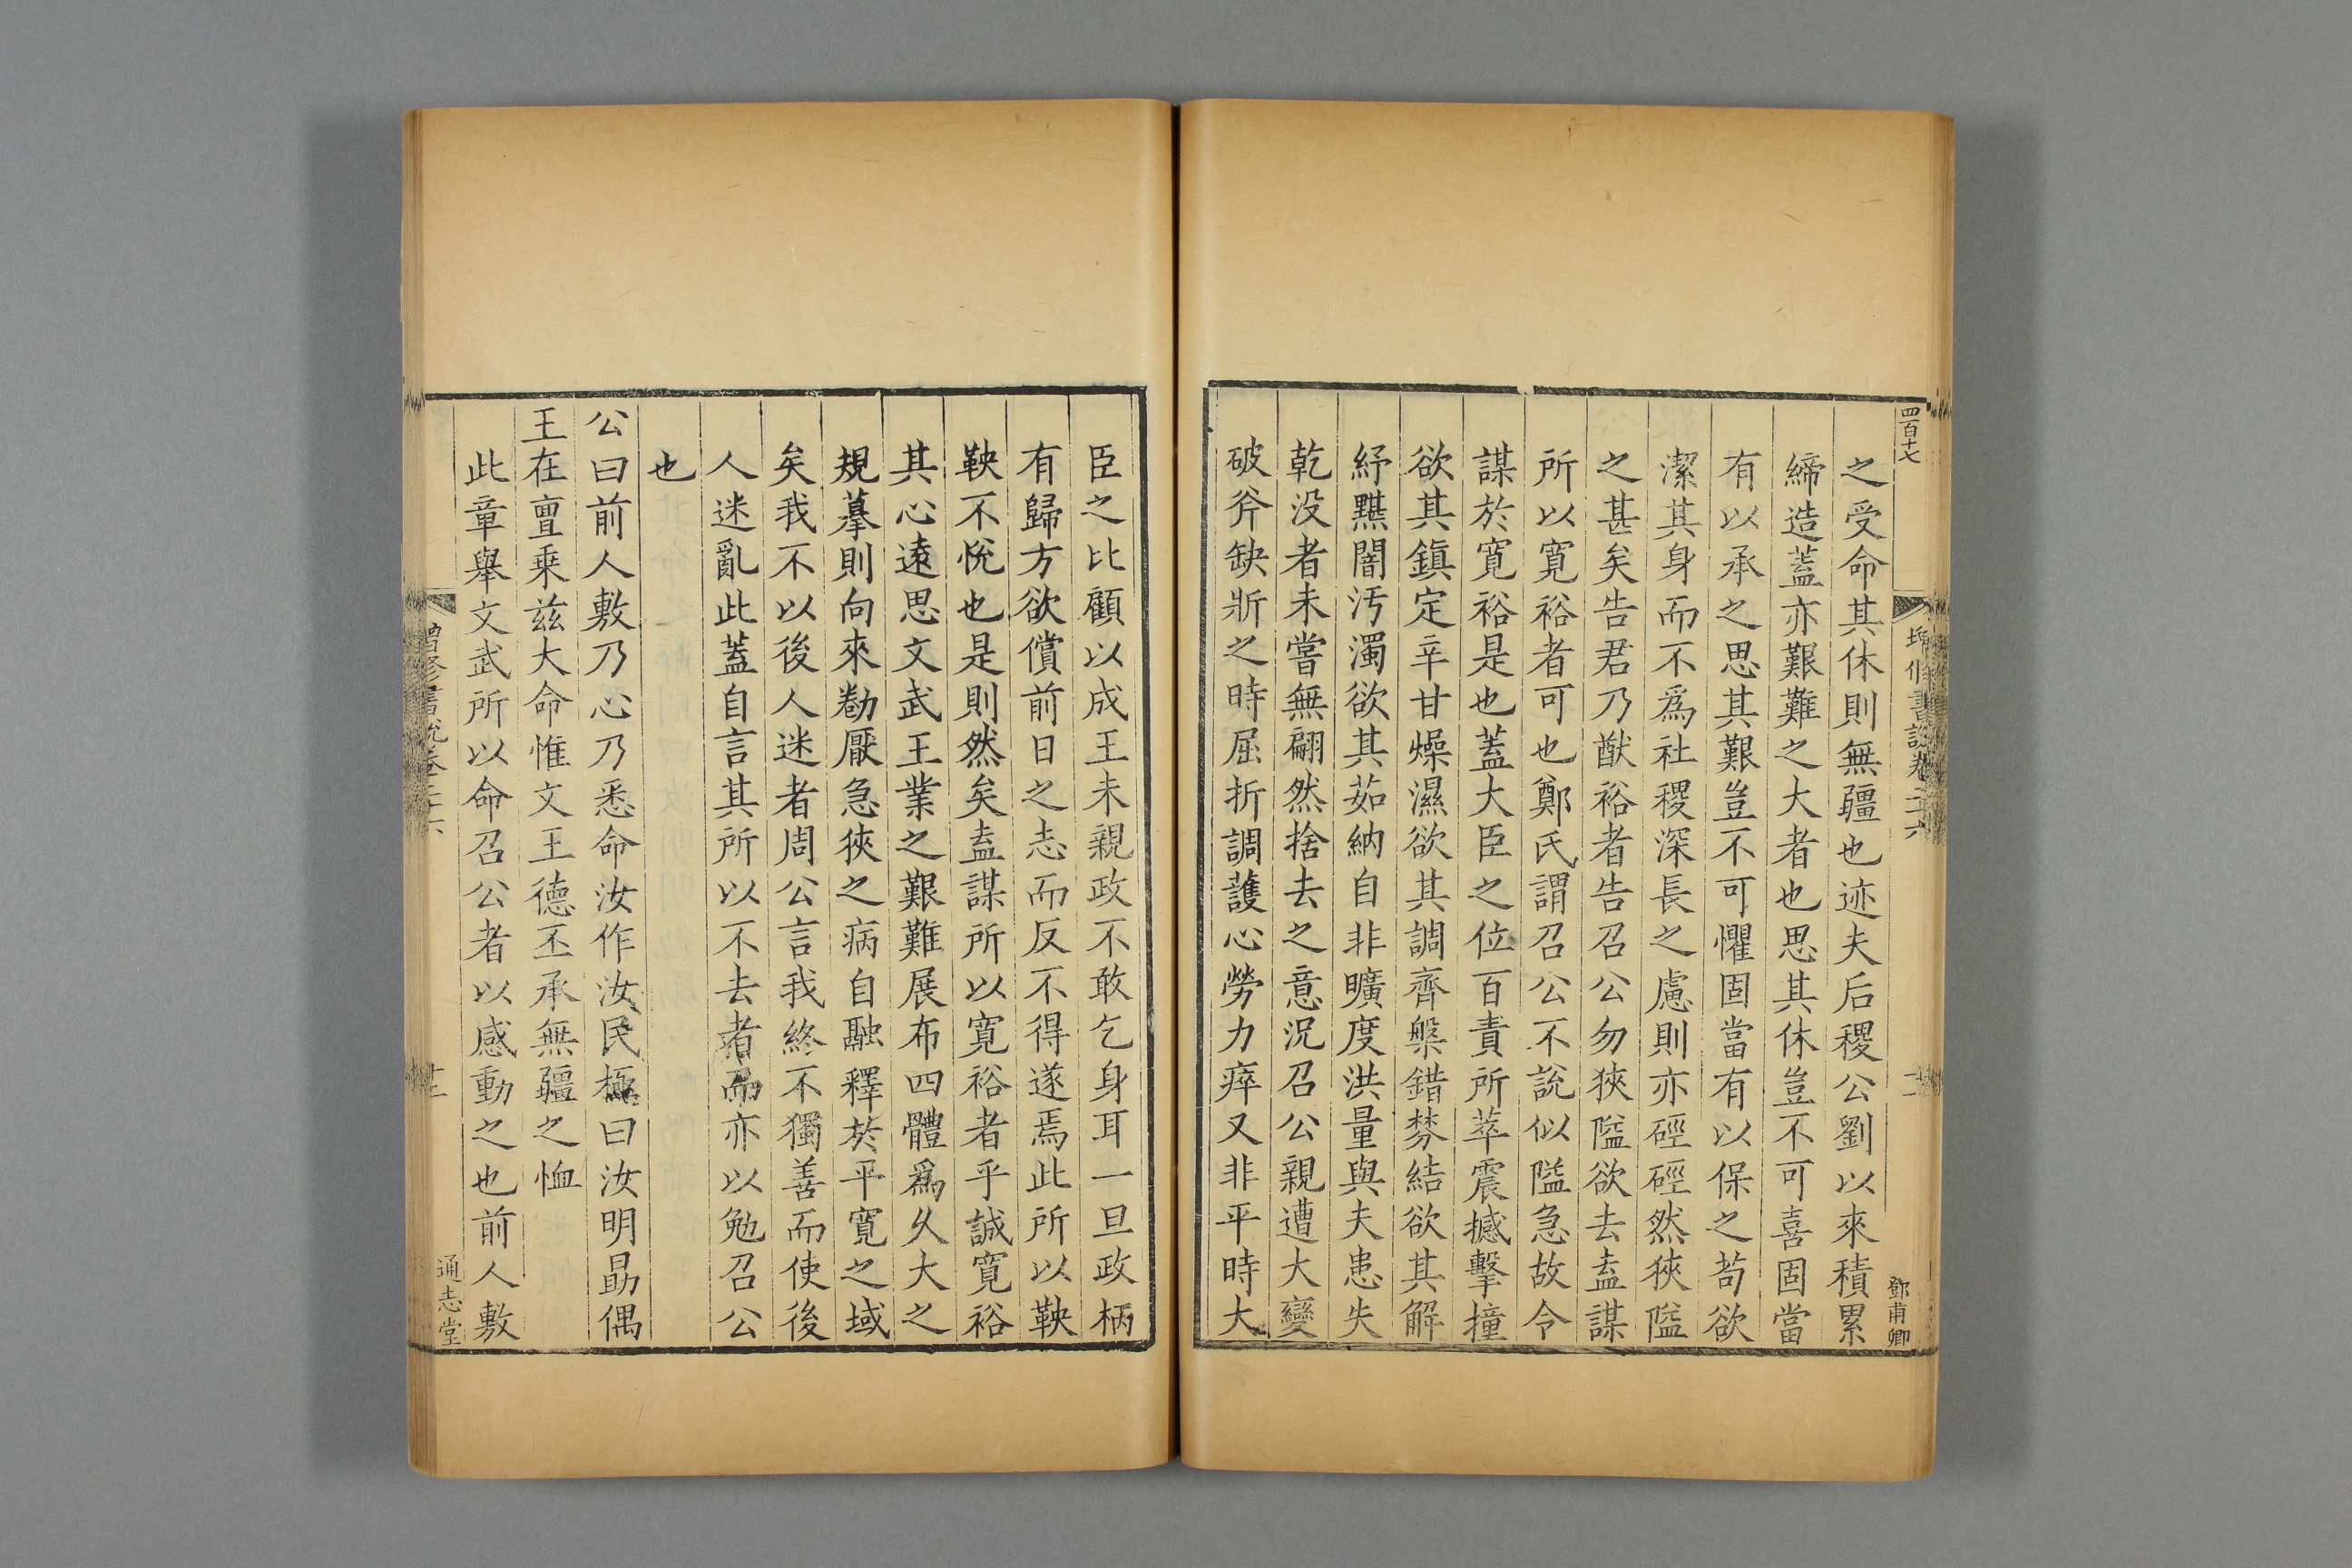 四百十七
增修書說卷二十六
鄧甫卿
之受命其休則無疆也迹夫后稷公劉以來積累
締造蓋亦艱難之大者也思其休豈不可喜固當
有以承之思其艱豈不可懼固當有以保之苟欲
潔其身而不爲社稷深長之慮則亦硜硜然狹隘
之甚矣告君乃猷裕者告召公勿狹隘欲去盍謀
所以寬裕者可也鄭氏謂召公不說似隘急故令
謀於寬裕是也蓋大臣之位百責所萃震撼擊撞
欲其鎮定辛甘燥濕欲其調齊槃錯棼結欲其解
紓黮闇汚濁欲其茹納自非曠度洪量與夫患失
乾没者未嘗無翩然捨去之意況召公親遭大變
破斧缺斨之時屈折調護心勞力瘁又非平時大
臣之比顧以成王未親政不敢乞身耳一旦政柄
有歸方欲償前日之志而反不得遂焉此所以鞅
鞅不悅也是則然矣盍謀所以寬裕者乎誠寬裕
其心遠思文武王業之艱難展布四體爲久大之
規摹則向來勌厭急狹之病自融釋於平寬之域
矣我不以後人迷者周公言我終不獨善而使後
人迷亂此蓋自言其所以不去者而亦以勉召公
也
公曰前人敷乃心乃悉命汝作汝民極曰汝明勗偶
王在亶乘茲大命惟文王德丕承無疆之恤
此章舉文武所以命召公者以感動之也前人敷
增修書說卷二十六
通志堂